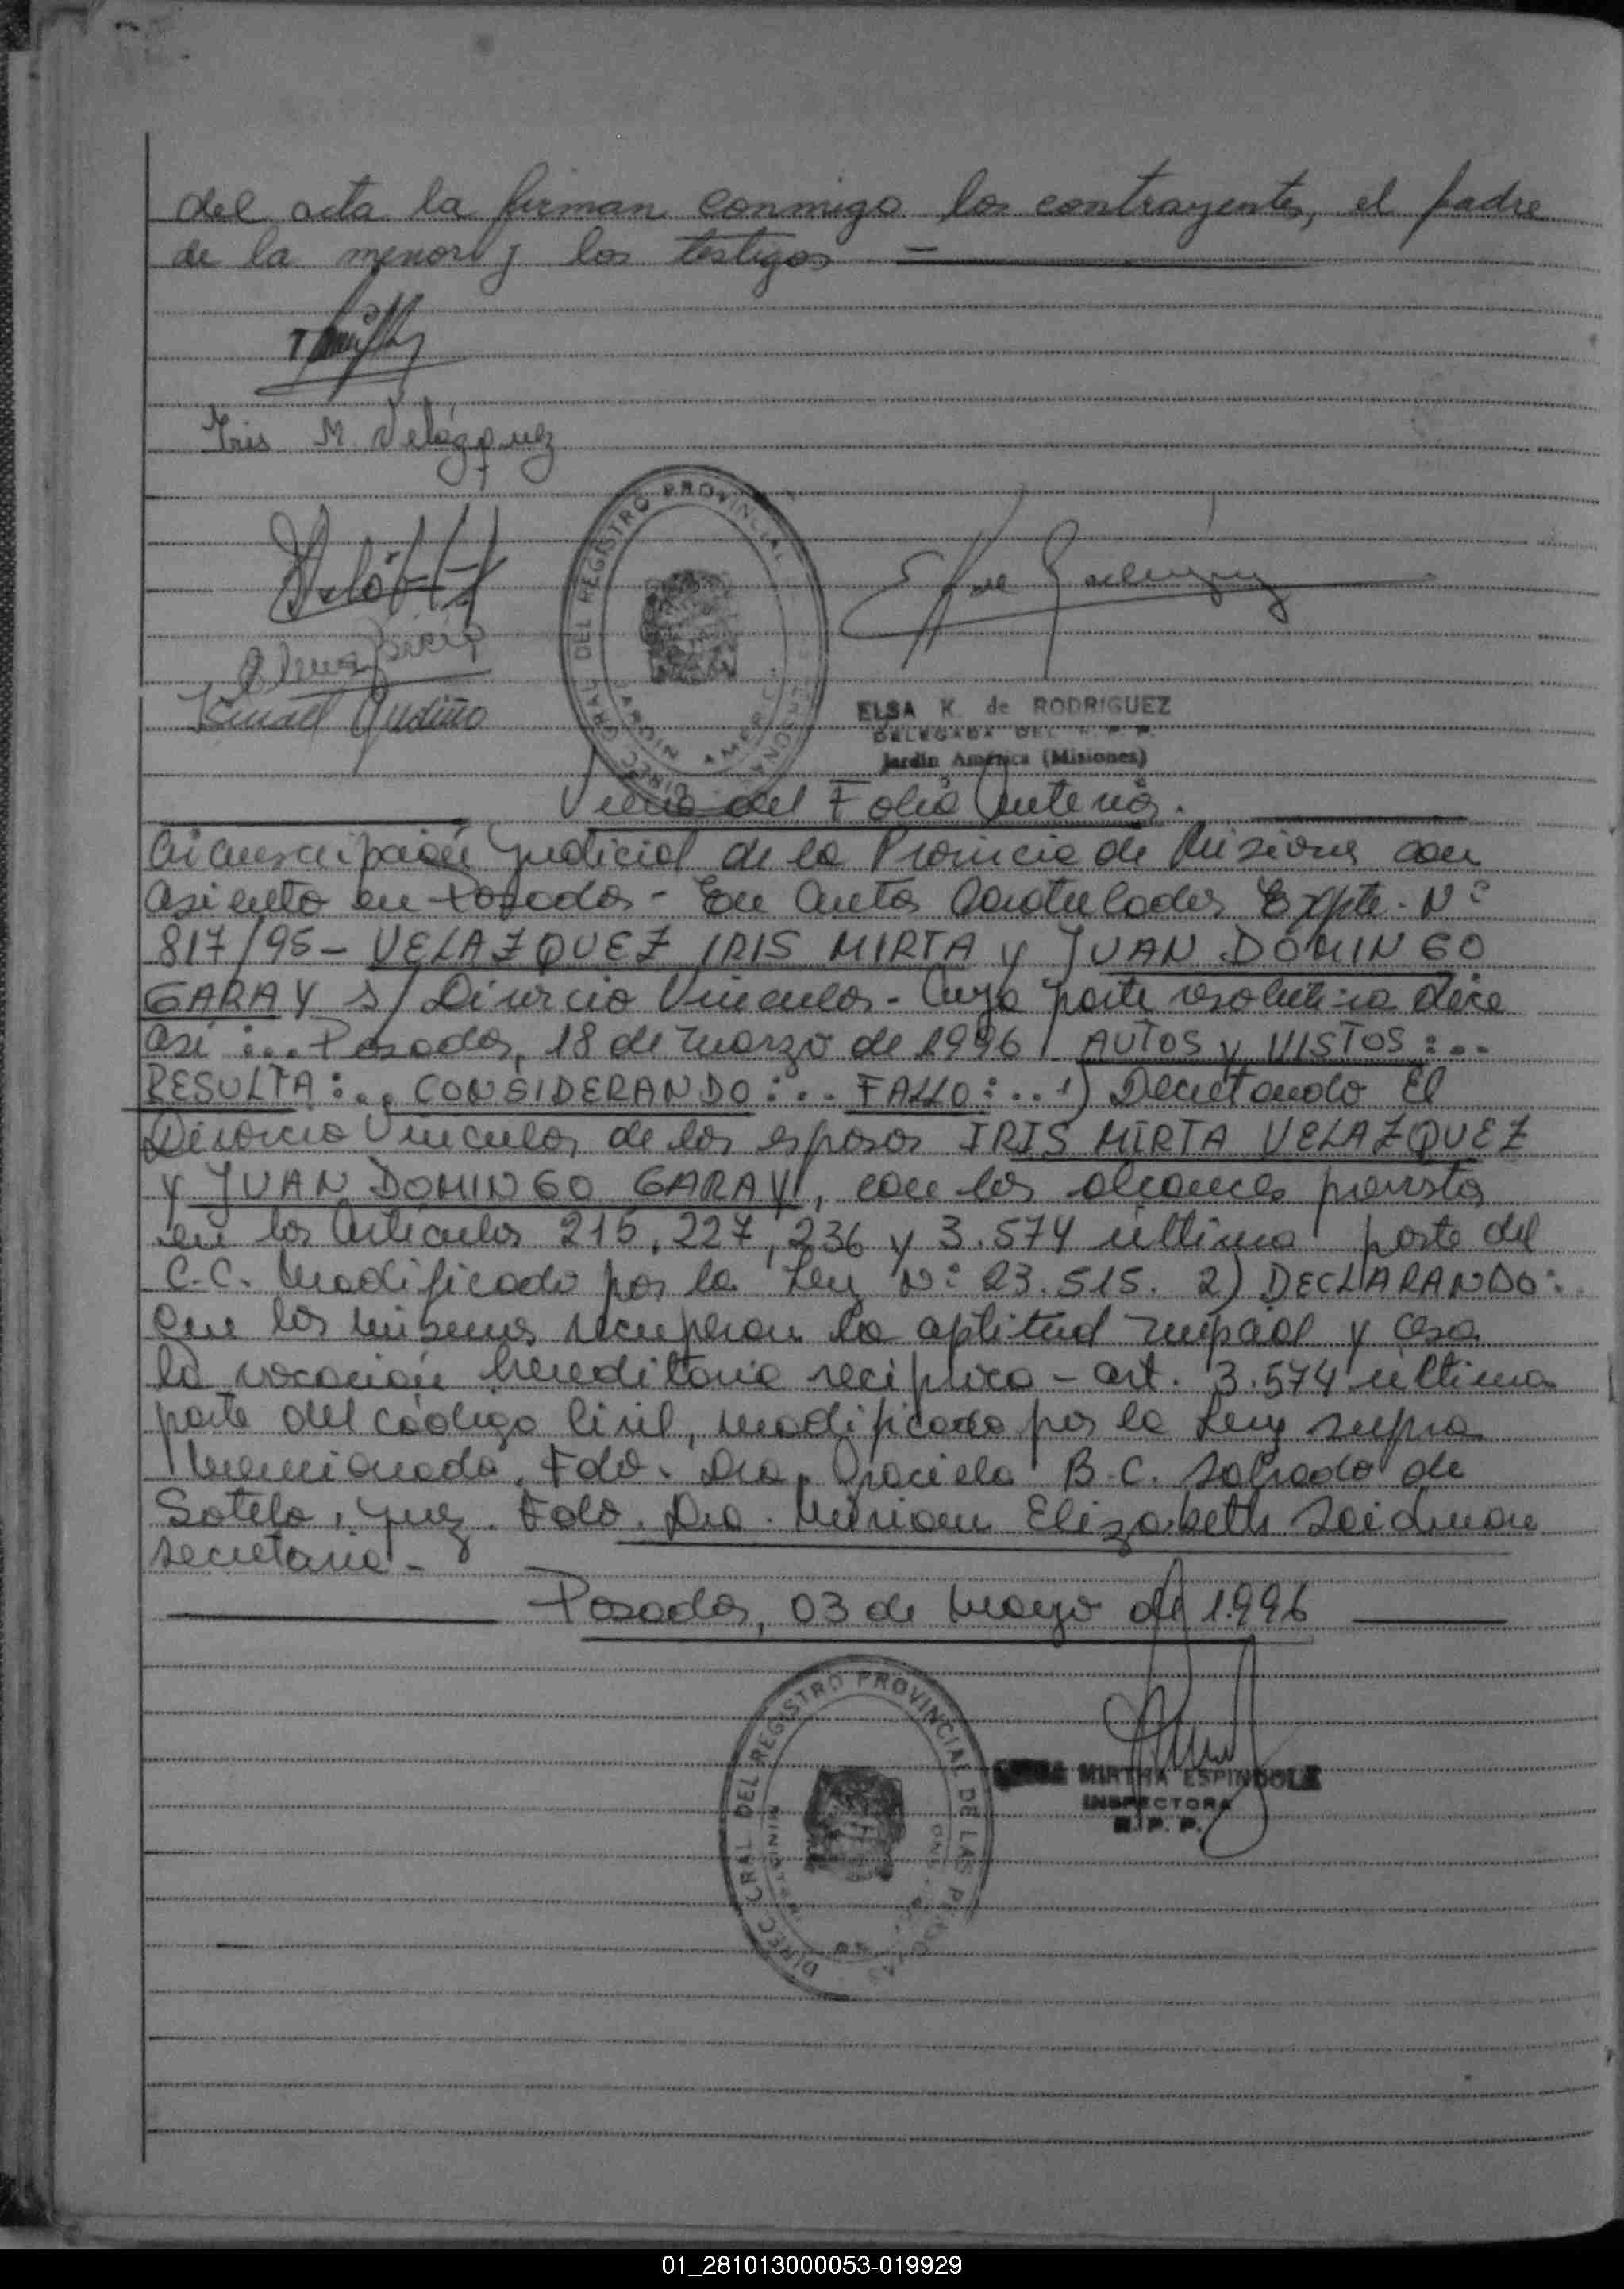 del acta la firman conmigo los contrayentes, el padre
de la menor y los testigos
Iris M. Velázquez
DIREC. GRAL. DEL REGISTRO PROVINCIAL
JARDIN AMERICA
Ismael Gudiño
ELSA K. de RODRIGUEZ
DELEGADA DEL R. P. P.
Jardín América (Misiones)
Viene del Folio Anterior.
Circunscripción Judicial de la Provincia de Misiones con
asiento en Posadas - En Autos Caratulados Expte. Nº
817/95 - VELAZQUEZ IRIS MIRTA y JUAN DOMINGO
GARAY s/ Divorcio Vincular - Cuya parte resolutiva dice
así:... Posadas, 18 de marzo de 1996 AUTOS y VISTOS:...
RESULTA:... CONSIDERANDO:... FALLO:... 1) Decretando El
Divorcio Vincular de los esposos IRIS MIRTA VELAZQUEZ
y JUAN DOMINGO GARAY, con los alcances previstos
en los Artículos 215, 227, 236 y 3.574 última parte del
C.C. modificado por la Ley Nº 23.515. 2) DECLARANDO:
Que los mismos recuperan la aptitud nupcial y cesa
la vocación hereditaria recíproca - art. 3.574 última
parte del código Civil, modificado por la Ley supra
mencionada. Fdo. Dra. Graciela B.C. Salvado de
Sotelo, Juez. Fdo. Dra. Miriam Elizabeth Zaidman
secretaria -
Posadas, 03 de mayo de 1.996
DIREC. GRAL DEL REGISTRO PROVINCIAL DE LAS PERSONAS
MIRTHA ESPINDOLA
INSPECTORA
R. P. P.
01_281013000053-019929